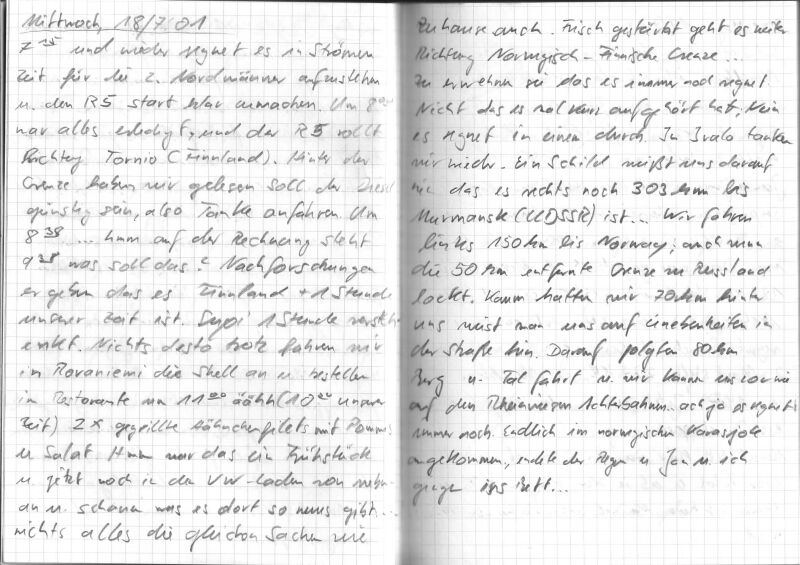 Mittwoch, 18/7 01
7 45 und wieder regnet es in Strömen
Zeit für die 2. Nordmänner aufzustehen
u. den R5 start klar zumachen. Um 8 00
war alles erledigt, und der R5 rollt
Richtung Tornio (Finnland). Hinter der
Grenze haben wir gelesen soll der Diesel
günstig sein, also Tanke anfahren. Um
8 38 ... hmm auf der Rechnung steht
9 38 was soll das? Nachforschungen
ergeben das es Finnland + 1 Stunde
unserer Zeit ist. Supi 1 Stunde
Nichts desto trotz fahren wir
in Rovaniemi die Shell an u. bestellen
im Restorante um 11 00 äähh (10 00 unserer
Zeit) 2 x gegrillte Hähnchenfilets mit Pommes
u Salat. Hmm war das ein Frühstück
u. jetzt noch in den VW-Laden von neben
an u. schauen was es dort so neues gibt...
nichts alles die gleichen Sachen wie
Zuhause auch. Frisch gestärkt geht es weiter
Richtung Norwegisch - Finnische Grenze...
Zu erwehnen sie das es immer noch regnet
Nicht das es mal kurz aufgehört hat, Nein
es regnet in einem durch. In Ivalo tanken
wir wieder. Ein Schild weißt uns darauf
hin das es rechts noch 303 km bis
Murmansk (UDSSR) ist... Wir fahren
links 150 km bis Norway, auch wenn
die 50 km entfernte Grenze zu Russland
lockt. Kaum hatten wir 70 km hinter
uns weist man uns auf unebenheiten in
der Straße hin. Darauf folgten 80 km
Berg u. Tal fahrt u. wir kamen uns vor wie
auf den Rheinwiesen Achterbahnen.. ach ja es regnet
immer noch. Endlich im norwegischen Karasjok
angekommen, endete der Regen u Jan u. ich
gingen ins Bett...